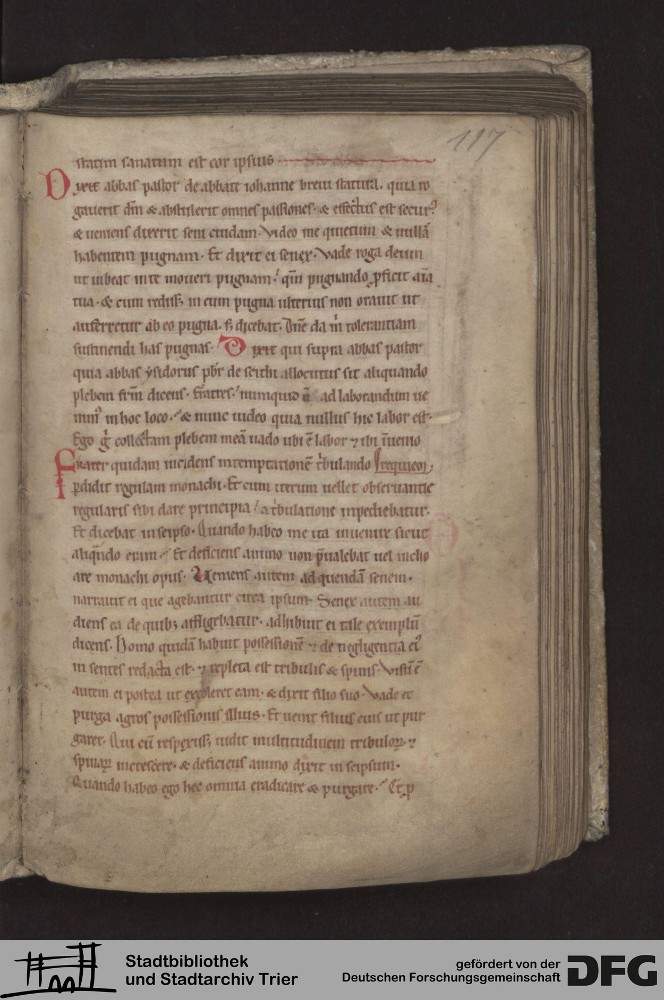 117
statim sanatum est cor ipsius
Dixit abbas pastor de abbate iohanne brevi statura. quia ro
gaverit dm̄ & abstulerit omnes passiones. & effectus est secur᷒
& veniens dixerit seni cuidam. Video me quietum & nullā
habentem pugnam. Et dixit ei senex. Vade roga deum
ut iubeat in te moveri pugnam. qm̄ pugnando ꝓficit aīa
tua. & cum rediss; in eum pugna ulterius non oravit ut
auferretur ab eo pugna. s; dicebat. Dn̄e da m̄ tolerantiam
sustinendi has pugnas. Dixit qui supra abbas pastor
quia abbas ysidorus pbr̄ de scithi allocutus sit aliquando
plebem frm̄ dicens. fratres. numquid ad laborandum ve
nim᷒ in hoc loco. & nunc video quia nullus hic labor est.
Ego g̊ collectam plebem meā vado ubi ē labor ⁊ ibi īvenio
Frater quidam incidens in temptationē tbulando requiem.
ꝑdidit regulam monachi. Et cum iterum vellet observantie
regularis sibi dare principia. a tbulatione inpediebatur.
Et dicebat in seipso. Quando habeo me ita invenire sicut
aliqn̄do eram. Et deficiens animo non p̄valebat vel incho
are monachi opus. Veniens autem ad quendā senem.
narravit ei que agebantur circa ipsum. Senex autem au
diens ea de quib; affligebatur. adhibuit ei tale exemplū
dicens. Homo quidā habuit possessionē ⁊ de negligentia ei᷒
in sentes redacta est. ⁊ repleta est tribulis & spinis. Visū ē
autem ei postea ut excoleret eam. & dixit filio suo. Vade et
purga agros possessionis illius. Et venit filius eius ut pur
garet. Qui cū respexiss; vidit multitudinem tribuloꝝ ⁊
spinaꝝ increscere. & deficiens animo dixit in seipsum.
Quando habeo ego hec omnia eradicare & purgare.
Stadtbibliothek
und Stadtarchiv Trier
gefördert von der
Deutschen Forschungsgemeinschaft
DFG